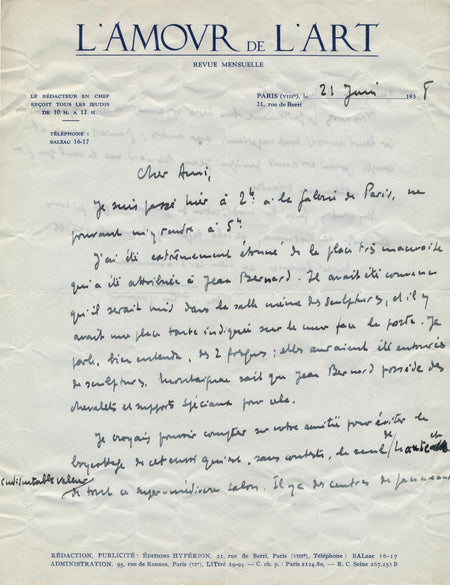 L'AMOVR DE L'ART
REVUE MENSUELLE
LE RÉDACTEUR EN CHEF
REÇOIT TOUS LES JEUDIS
DE 10 H. A 12 H.
TÉLÉPHONE :
BALZAC 16-17
PARIS (VIIIe), le 21 Juin 1938
21, rue de Berri
Cher Ami,
Je suis passé hier à 2h à la Galerie de Paris, ne
pouvant m'y rendre à 5h.
J'ai été extrêmement étonné de la place très mauvaise
qui a été attribuée à Jean Bernard. Il avait été convenu
qu'il serait mis dans la salle même des sculptures, et il y
avait une place toute indiquée sur le mur face la porte. Je
parle, bien entendu, des 2 fresques ; elles auraient été entourées
de sculptures. Montagnac sait que Jean Bernard possède des
chevalets et supports spéciaux pour cela.
Je croyais pouvoir compter sur votre amitié pour éviter le
boycottage de cet envoi qui est, sans conteste, le seul de haute et
indiscutable valeur
de tout ce super-médiocre salon. Il y a des centres de
RÉDACTION, PUBLICITÉ : ÉDITIONS HYPÉRION, 21, rue de Berri, Paris (VIIIe), Téléphone : BALzac 16-17
ADMINISTRATION, 95, rue de Rennes, Paris (VIe), LITtré 19-94 — C. ch. p. : Paris 2124.80. — R. C. Seine 267.251 B